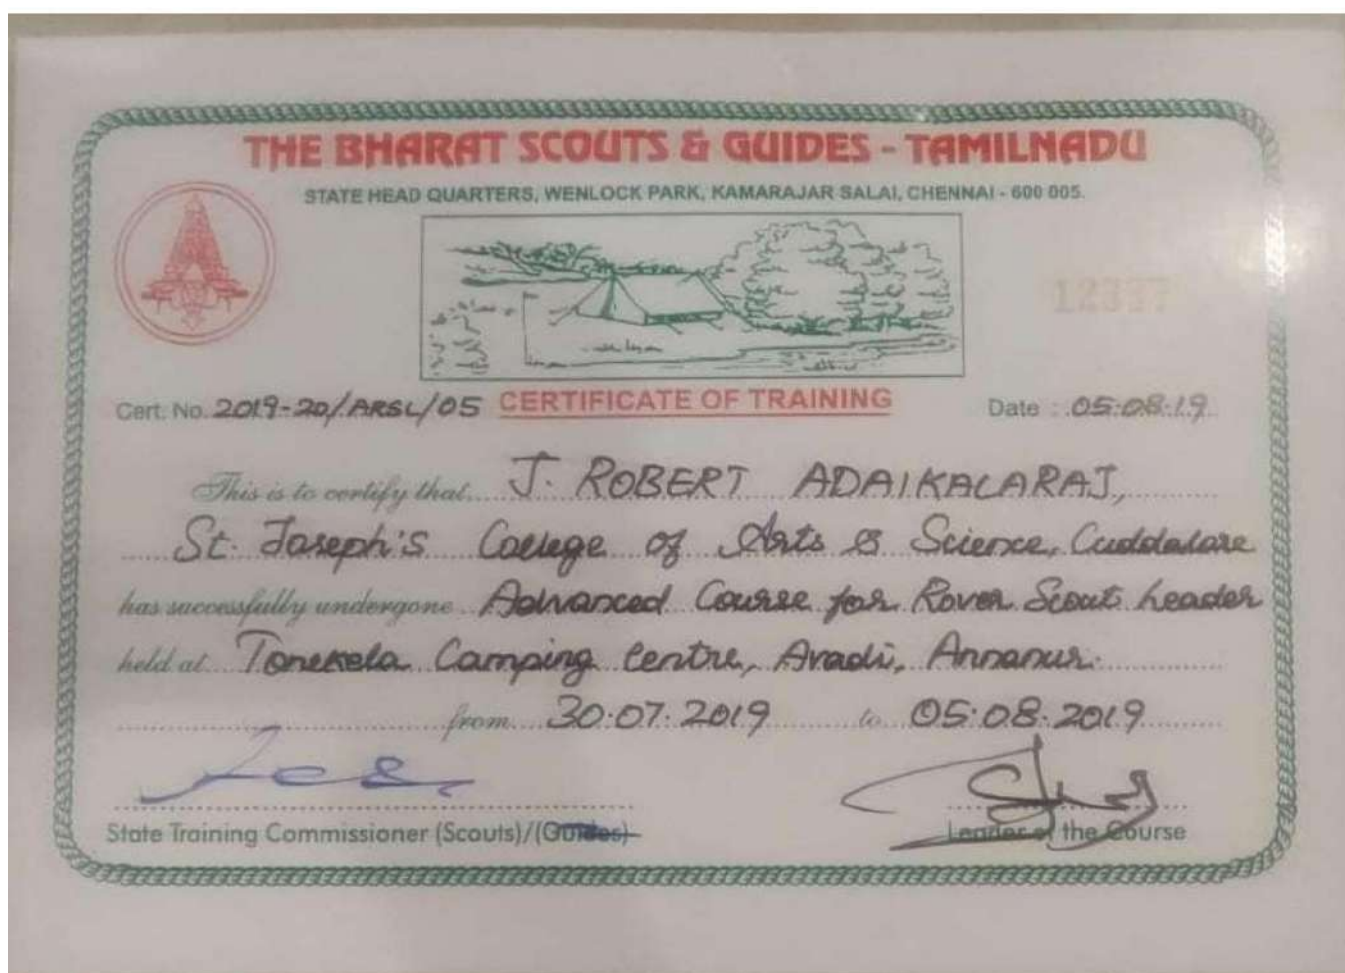 THE BHARAT SCOUTS & GUIDES - TAMILNADU
STATE HEAD QUARTERS, WENLOCK PARK, KAMARAJAR SALAI, CHENNAI - 600 005.
Cert. No. 2019-20/ARSL/05 CERTIFICATE OF TRAINING Date : 05.08.19
This is to certify that J. ROBERT ADAIKALARAJ,
St. Joseph's College of Arts & Science, Cuddalore
has successfully undergone Advanced Course for Rover Scout Leader
held at Tonekela Camping Centre, Avadi, Annanur.
from 30.07.2019 to 05.08.2019
State Training Commissioner (Scouts)/(Guides)
Leader of the Course